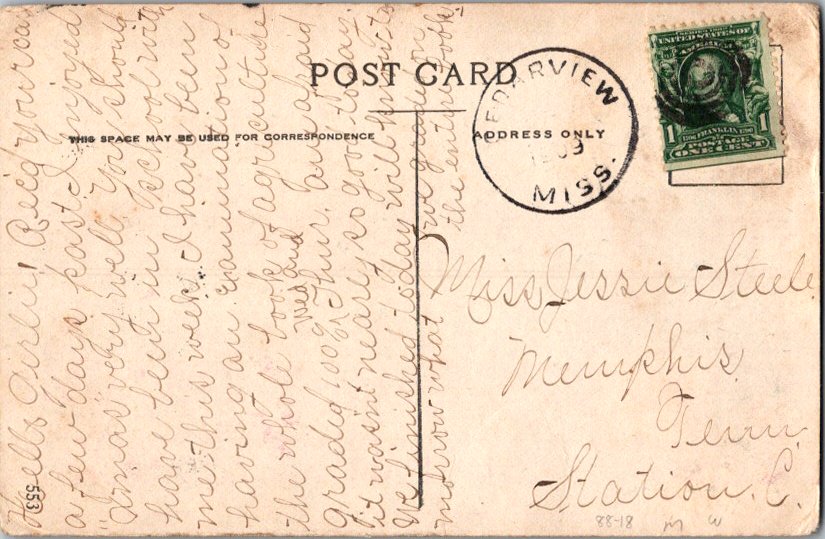 POST CARD
THIS SPACE MAY BE USED FOR CORRESPONDENCE
ADDRESS ONLY
CEDARVIEW
1909
MISS.
UNITED STATES OF
AMERICA
1 FRANKLIN 1
POSTAGE
ONE CENT
Hello Girlie! Rec'd your card
a few days past. I enjoyed
Xmas very well. You should
have been in school with
me this week. I have been
having an examination of
the whole book of agriculture
graded 100% Wed and Thur. but afraid
it wasn't nearly so good today.
We finished today will know to
morrow what we grade on
the entire book.
Miss Jessie Steele
Memphis
Tenn.
Station. C.
553
88-18 m w